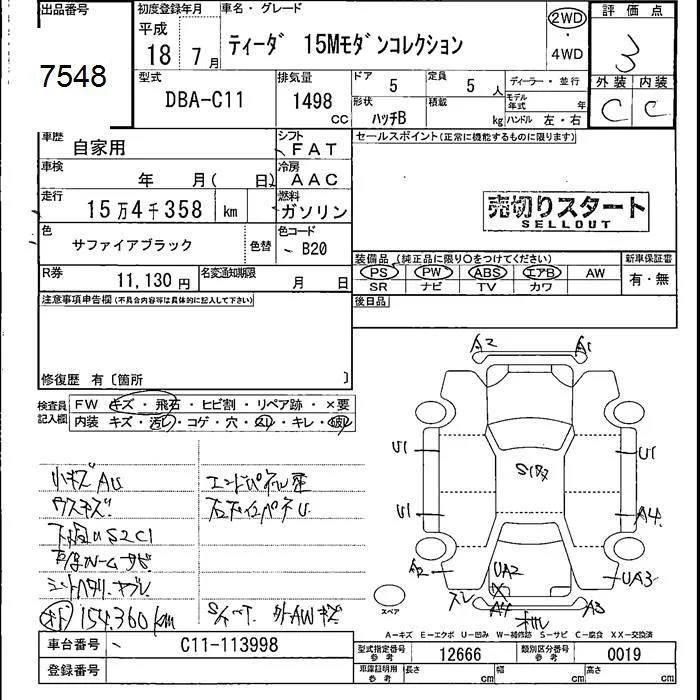 出品番号
7548
初度登録年月
平成
18 7月
車名・グレード
ティーダ 15Mモダンコレクション
2WD
・
4WD
評価点
3
外装 内装
C C
型式
DBA-C11
排気量
1498 CC
ドア
5
定員
5 人
形状
ハッチB
積載
kg
ディーラー・並行
モデル年式 年
ハンドル 左・右
車歴
自家用
シフト
FAT
車検
年 月( 日)
冷房
AAC
走行
15万4千358 km
燃料
ガソリン
色
サファイアブラック
色替
色コード
B20
R券
11,130円
名変通知期限
月 日
セールスポイント(正常に機能するものに限ります)
売切りスタート
SELLOUT
装備品(純正品に限り○をつけてください)
新車保証書
PS PW ABS エアB AW
有・無
SR ナビ TV カワ
後日品
注意事項申告欄(不具合内容等は具体的に記入して下さい)
修復歴 有〔箇所 〕
検査員記入欄
FW キズ・飛石・ヒビ割・リペア跡・×要
内装 キズ・汚レ・コゲ・穴・スリ・キレ・破レ
小キズAU
ウスキズ
下廻りS2C1
154,360km
外AWキズ
エンドパネル歪
A2 A1
U1 U1
S1
U1 A4
A2 UA2 UA3
X
A4 A3
スペア
A-キズ E-エクボ U-凹み W-補修跡 S-サビ C-腐食 XX-交換済
車台番号
C11-113998
登録番号
型式指定番号 参考
12666
類別区分番号 参考
0019
車庫証明用 参考
長さ cm
幅 cm
高さ cm